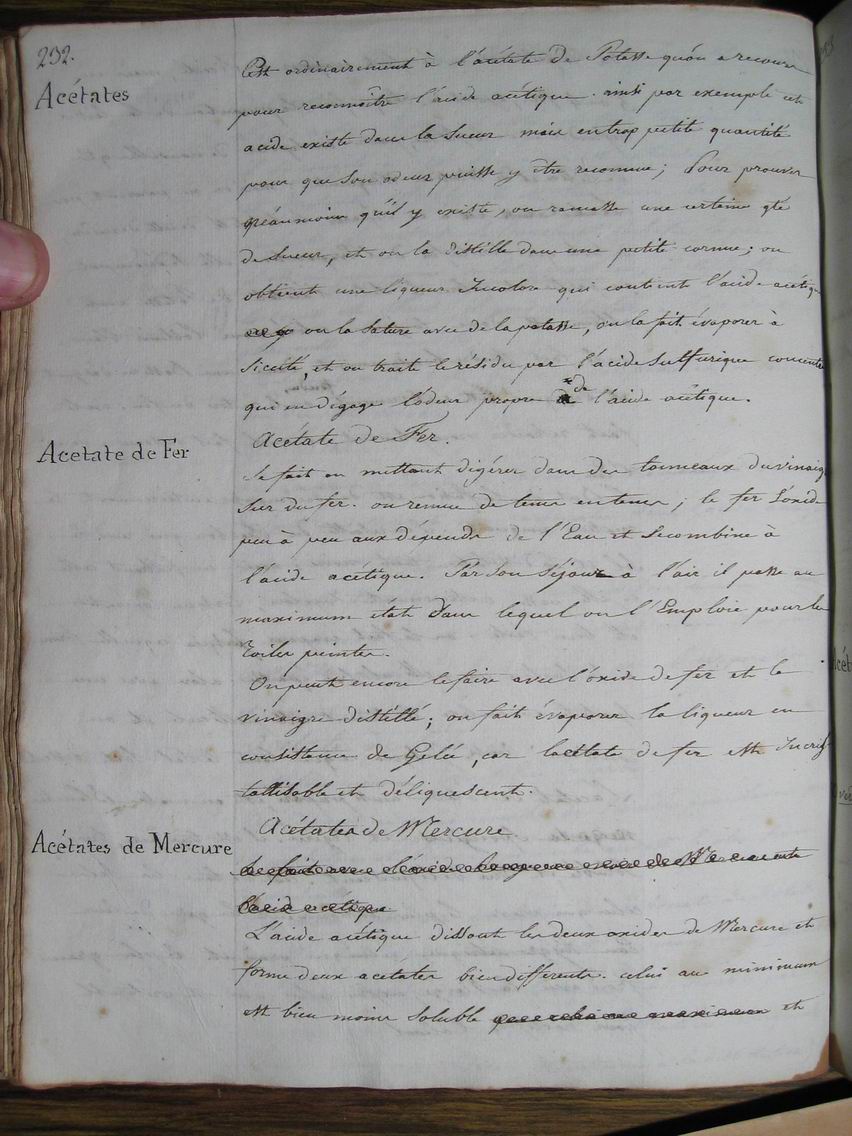 232.
Acétates
C'est ordinairement à l'acétate de Potasse qu'on a recours
pour reconnoître l'acide acétique. ainsi par exemple cet
acide existe dans la Sueur mais en trop petite quantité
pour que Son odeur puisse y être reconnue; Pour prouver
néanmoins qu'il y existe, on ramasse une certaine qté
de Sueur, et on la distille dans une petite cornue; on
obtient une liqueur Incolore qui contient l'acide acétique
on la Sature avec de la potasse, on la fait évaporer à
Siccité, et on traite le résidu par l'acide Sulfurique concentré
qui en dégage l'odeur propre de l'acide acétique.
Acétate de Fer
Acétate de Fer.
Se fait en mettant digérer dans des tonneaux du vinaigre
Sur du fer. on remue de tems en tems; le fer S'oxide
peu à peu aux dépends de l'Eau et Se combine à
l'acide acétique. Par Son Séjour à l'air il passe au
maximum état dans lequel on l'Emploie pour les
Toiles peintes.
On peut encore le faire avec l'oxide de fer et le
vinaigre distillé; on fait évaporer la liqueur en
consistance de Gelée, car l'acétate de fer est Incris-
tallisable et déliquescent.
Acétates de Mercure
Acétates de Mercure
L'acide acétique dissout les deux oxides de Mercure et
forme deux acétates bien différents. celui au minimum
est bien moins Soluble et